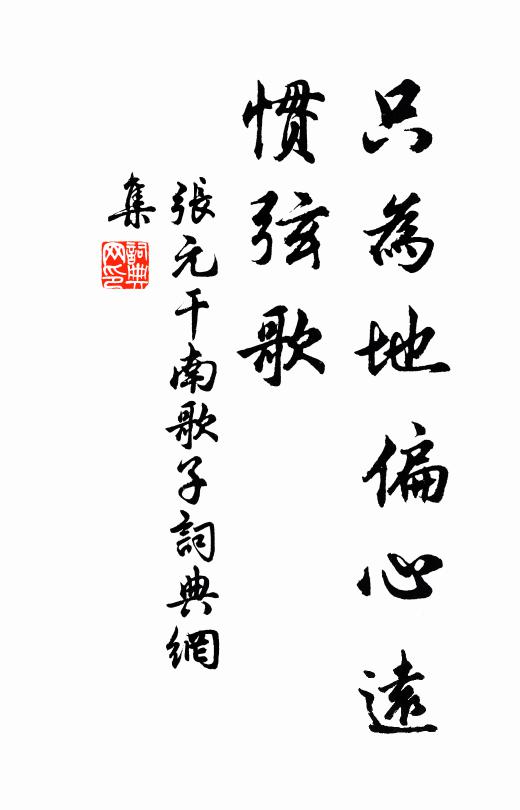 只為地偏心遠
慣弦歌
張元干南歌子詞典網
集
詞典
网印